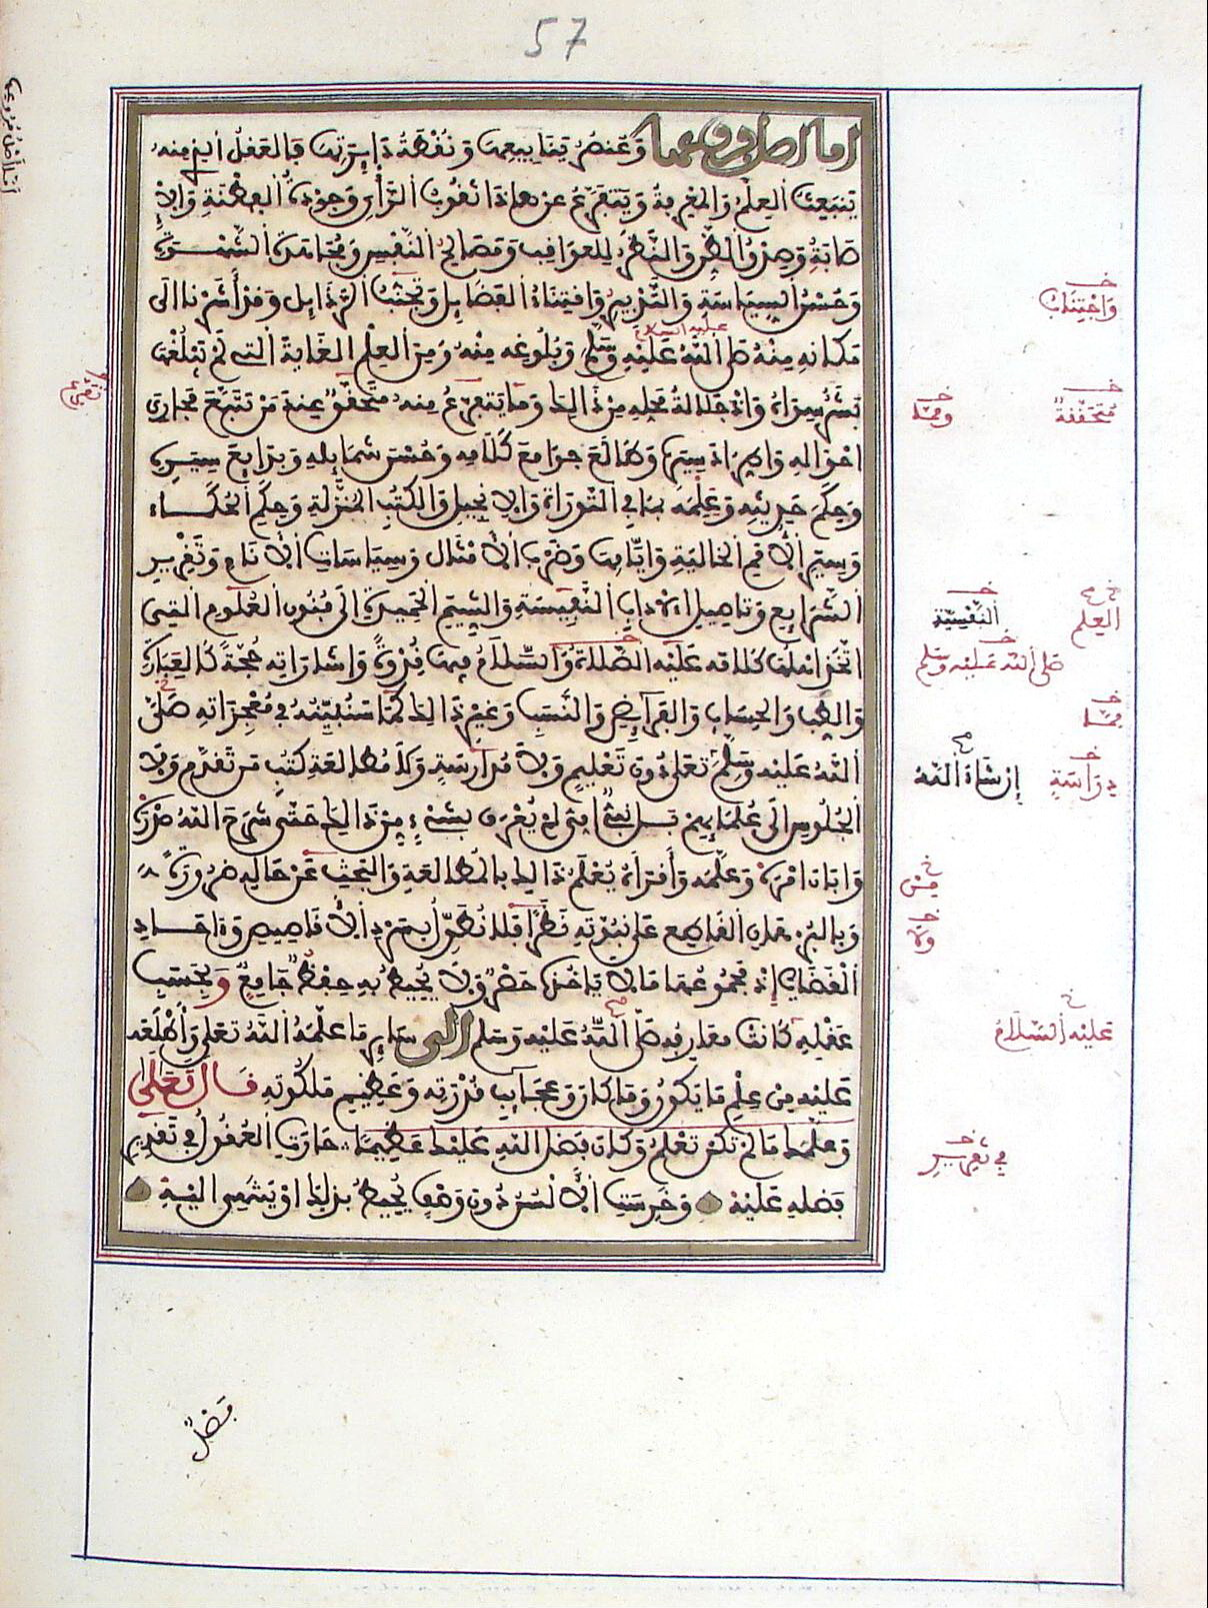 57
اما اصل فروعها وعنصر ينابيعها ونقطة دايرتها فالعقل الذي منه
ينبعث العلم والمعرفة ويتفرع عن هاذا ثقوب الرأي وجودة الفطنة والا
صابة وصدق الظن والنظر للعواقب ومصالح النفس ومجاهدة الشهوة
وحسن السياسة والتدبير واقتناء الفضايل وتجنب الرذايل وقد أشرنا الى
مكانه منه صلى الله عليه وسلم وبلوغه منه ومن العلم الغاية التي لم يبلغها
بشر سواه واذ جلالة محله من ذالك ومما يتفرع منه متحقق عند من تتبع مجاري
احواله واطراد سيره وطالع جوامع كلامه وحسن شمايله وبدايع سيره
وحكم حديثه وعلمه بما في التوراة والانجيل والكتب المنزلة وحكم الحكماء
وسير الأمم الخالية وأيامها وضرب الأمثال وسياسات الأنام وتقرير
الشرايع وتاصيل الاداب النفيسة والشيم الحميدة الى فنون العلوم التي
اتخذ اهلها كلامه عليه الصلاة والسلام فيها قدوة واشاراته حجة كالعبارة
والطب والحساب والفرايض والنسب وغير ذالك مما سنبينه في معجزاته صلى
الله عليه وسلم دون تعليم ولا مدارسة ولا مطالعة كتب من تقدم ولا
الجلوس الى علمايهم بل نبي امي لم يعرف بشيء من ذالك حتى شرح الله صدره
وابان امره وعلمه وأقرأه يعلم ذالك بالمطالعة والبحث عن حاله ضرورة
وبالبرهان القاطع على نبوته نظرا فلا نطول بسرد الأقاصيص واحاد
القضايا إذ مجموعها ما لا ياخذه حصر ولا يحيط به حفظ جامع وبحسب
عقله كانت معارفه صلى الله عليه وسلم الى ساير ما علمه الله تعلى وأطلعه
عليه من علم ما يكون وما كان وعجايب قدرته وعظيم ملكوته قال تعلى
وعلمك ما لم تكن تعلم وكان فضل الله عليك عظيما حارت العقول في تقدير
فضله عليه وخرست الألسن دون وصف يحيط بذلك او ينتهي اليه
واجتناب
متحققة
ومما
العلم
النفسية
صلى الله عليه وسلم
مما
دراسة
إن شاء الله
من
ولا
عليه السلام
في تقرير
عليه السلام
فصل